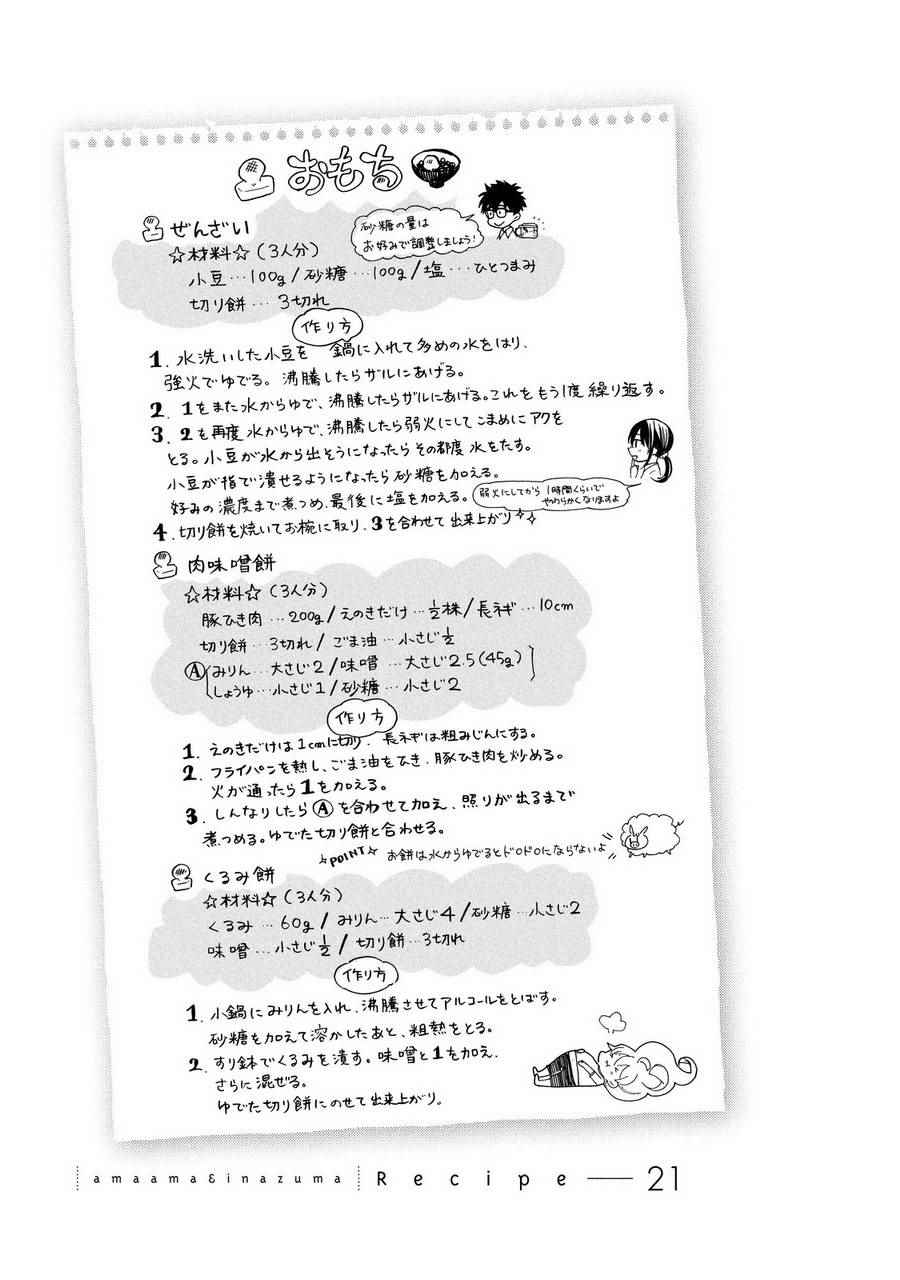 おもち
ぜんざい
砂糖の量は
お好みで調整しましょう!
☆材料☆(3人分)
小豆…100g/砂糖…100g/塩…ひとつまみ
切り餅…3切れ
作り方
1. 水洗いした小豆を 鍋に入れて多めの水をはり、
強火でゆでる。沸騰したらザルにあげる。
2. 1をまた水からゆで、沸騰したらザルにあげる。これをもう1度繰り返す。
3. 2も再度水からゆで、沸騰したら弱火にしてこまめにアクを
とる。小豆が水から出そうになったらその都度水をたす。
小豆が指で潰せるようになったら砂糖を加える。
好みの濃度まで煮つめ、最後に塩を加える。
弱火にしてから1時間くらいで
やわらかくなりますよ
4. 切り餅を焼いてお椀に取り、3を合わせて出来上がり
肉味噌餅
☆材料☆(3人分)
豚ひき肉…200g/えのきだけ…½株/長ネギ…10cm
切り餅…3切れ/ごま油…小さじ½
Ⓐ(みりん…大さじ2/味噌…大さじ2.5(45g)
しょうゆ…小さじ1/砂糖…小さじ2)
作り方
1. えのきだけは1cmに切り、長ネギは粗みじんにする。
2. フライパンを熱し、ごま油をひき、豚ひき肉を炒める。
火が通ったら1を加える。
3. しんなりしたらⒶを合わせて加え、照りが出るまで
煮つめる。ゆでた切り餅と合わせる。
POINT お餅は水からゆでるとドロドロにならないよ
くるみ餅
☆材料☆(3人分)
くるみ…60g/みりん…大さじ4/砂糖…小さじ2
味噌…小さじ½/切り餅…3切れ
作り方
1. 小鍋にみりんを入れ、沸騰させてアルコールをとばす。
砂糖を加えて溶かしたあと、粗熱をとる。
2. すり鉢でくるみを潰す。味噌と1を加え、
さらに混ぜる。
ゆでた切り餅にのせて出来上がり。
amaama&inazuma Recipe—21